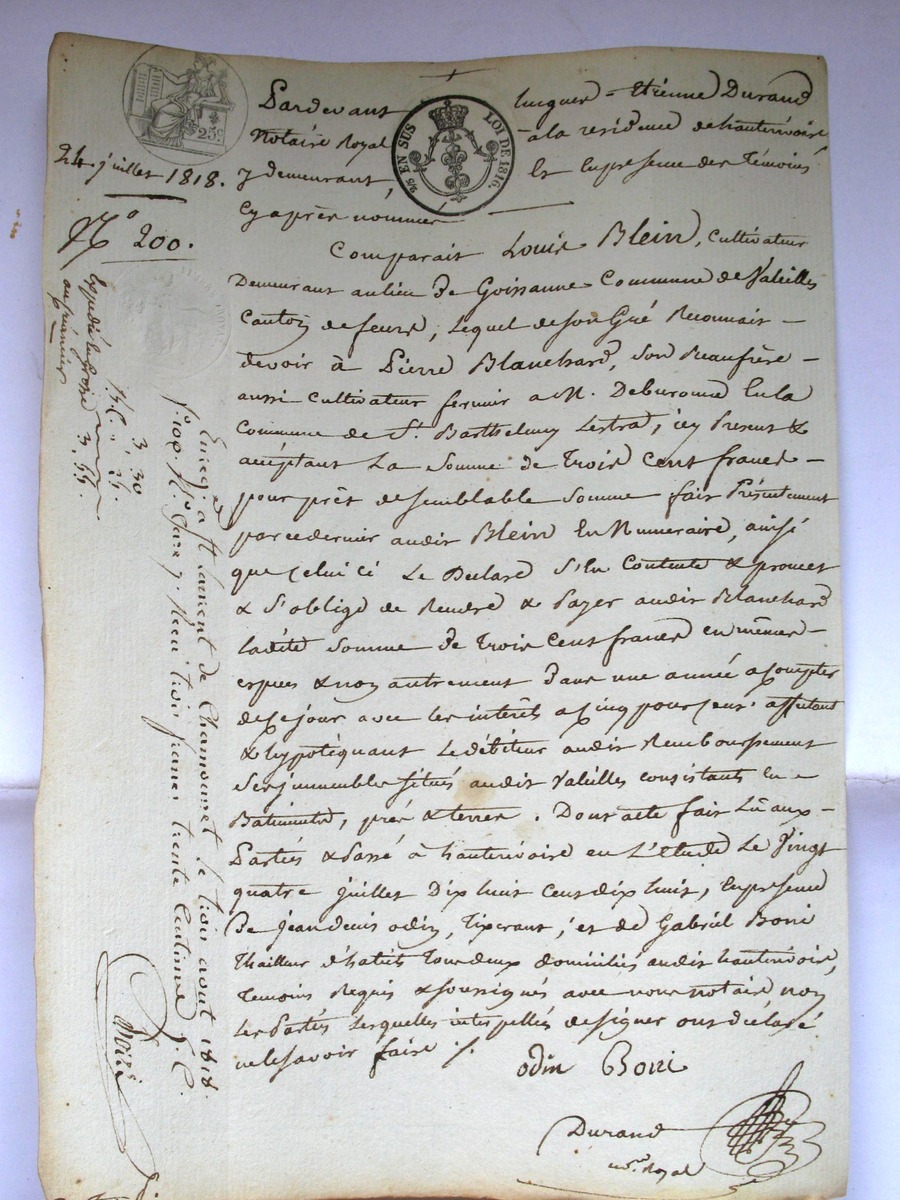 25c
EN SUS
LOI DE 1816.
24. juillet 1818.
N.° 200.
Pardevant Jucques = Etienne Durand
Notaire Royal à la residence de hauterivoire
y demeurant, Et En presence des Témoins
Cy après nommés
Comparait Louis Blein, Cultivateur
Demeurant au lieu De Goissanne Commune de Valeilles
Canton de feurs, Lequel de son Gré Reconnait
devoir à Pierre Blanchard, Son Beaufrère
aussi Cultivateur fermier a M. Deburonne En la
Commune de St. Barthelmy Lestra, icy Present &
acceptant La Somme de Trois Cent francs
pour prêt de semblable Somme fait Présentement
par ce dernier audit Blein En Numeraire, ainsi
que celui ci Le Declare S'En Contente & promet
& S'oblige de Rendre & Payer audit Blanchard
ladite Somme De Trois Cent francs en mêmes
espèces & non autrement Dans une année a Compter
de ce jour avec les interêts a cinq pour cent. affectant
& hypotéquant Le débiteur audit Remboursement
Ses immeubles situés audit Valeilles consistants En
Batiments, près & terres. Dont acte fait Lû aux
Parties & Passé à hauterivoire en L'etude Le Vingt
quatre juillet Dix huit Cent dix huit, En presence
De jean denis odin, Tixerant, et de Gabriel Boni
Thailleur d'habits Tous deux domiciliés audit hauterivoire,
Temoins Requis & soussignés avec nous notaire, non
Les Parties Lesquelles interpellées de signer ont déclaré
ne le savoir faire ./.
odin Boni
Durand
not.re Royal
Expedié la grosse 3. 55.
au créancier
3. 30
25.
Enreg.é a St Laurent de Chamousset le trois aout 1818.
f.° 109. R.° Case 7. Reçu trois francs trente Centimes